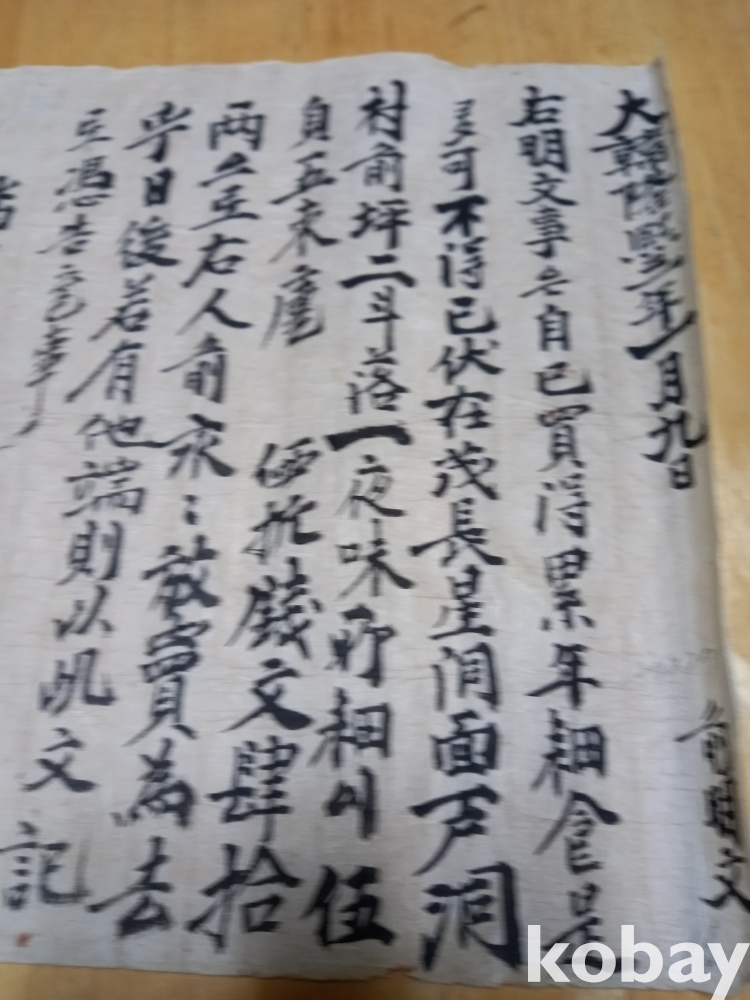 大韓隆熙二年一月九日
前明文
右明文事矣自己買得累年耕食是
多可不得已伏在茂長星洞面戶洞
村前坪二斗落一夜味耶耕川伍
負五束庫
価折錢文肆拾
兩矣至右人前永ミ放賣為去
乎日後若有他端則以此文記
告官事
kobay